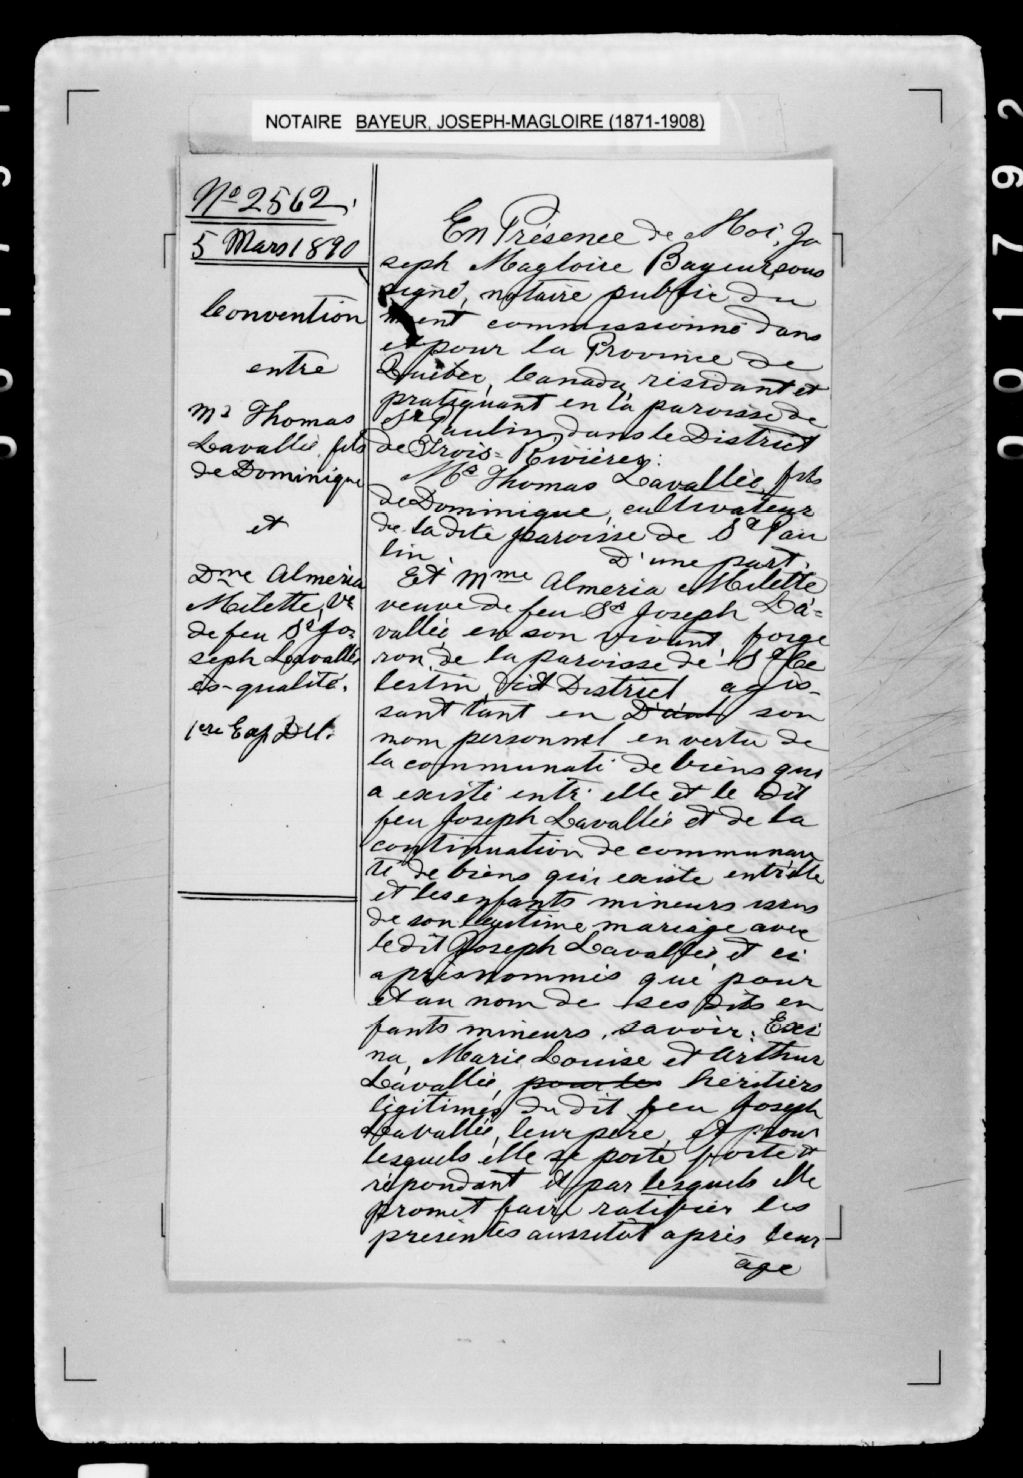 NOTAIRE BAYEUR, JOSEPH-MAGLOIRE (1871-1908)
No 2562.
5 Mars 1890
Convention
entre
Mr Thomas
Lavallée, fils
de Dominique
et
Dme Almeria
Milette, Ve
de feu Sr Jo-
seph Lavallée
ès-qualité.
1ere Exp. Dél.
En Présence de Moi, Jo
seph Magloire Bayeur, sous
signé, notaire public du
ment commissionné dans
et pour la Province de
Québec, Canada, résidant et
pratiquant en la paroisse de
St Paulin, dans le District
de Trois-Rivières:
Mr Thomas Lavallée, fils
de Dominique, cultivateur
de la dite paroisse de St Pau
lin. D'une part.
Et Mme Almeria Milette
veuve de feu Sr Joseph La-
vallée, en son vivant, forge
ron, de la paroisse de St Cé
lestin, dit District agis-
sant tant en son
nom personnel en vertu de
la communauté de biens qui
a existé entr' elle et le dit
feu Joseph Lavallée et de la
continuation de communau
té de biens qui existe entr'elle
et les enfants mineurs issus
de son légitime mariage avec
le dit Joseph Lavallée et ci
après nommés que pour
et au nom de ses dits en
fants mineurs, savoir: Exi
na, Marie Louise et Arthur
Lavallée, pour les héritiers
légitimes du dit feu Joseph
Lavallée, leur père, et pour
lesquels elle se porte forte et
répondant et par lesquels elle
promet faire ratifier les
présentes aussitôt après leur
âge
001792